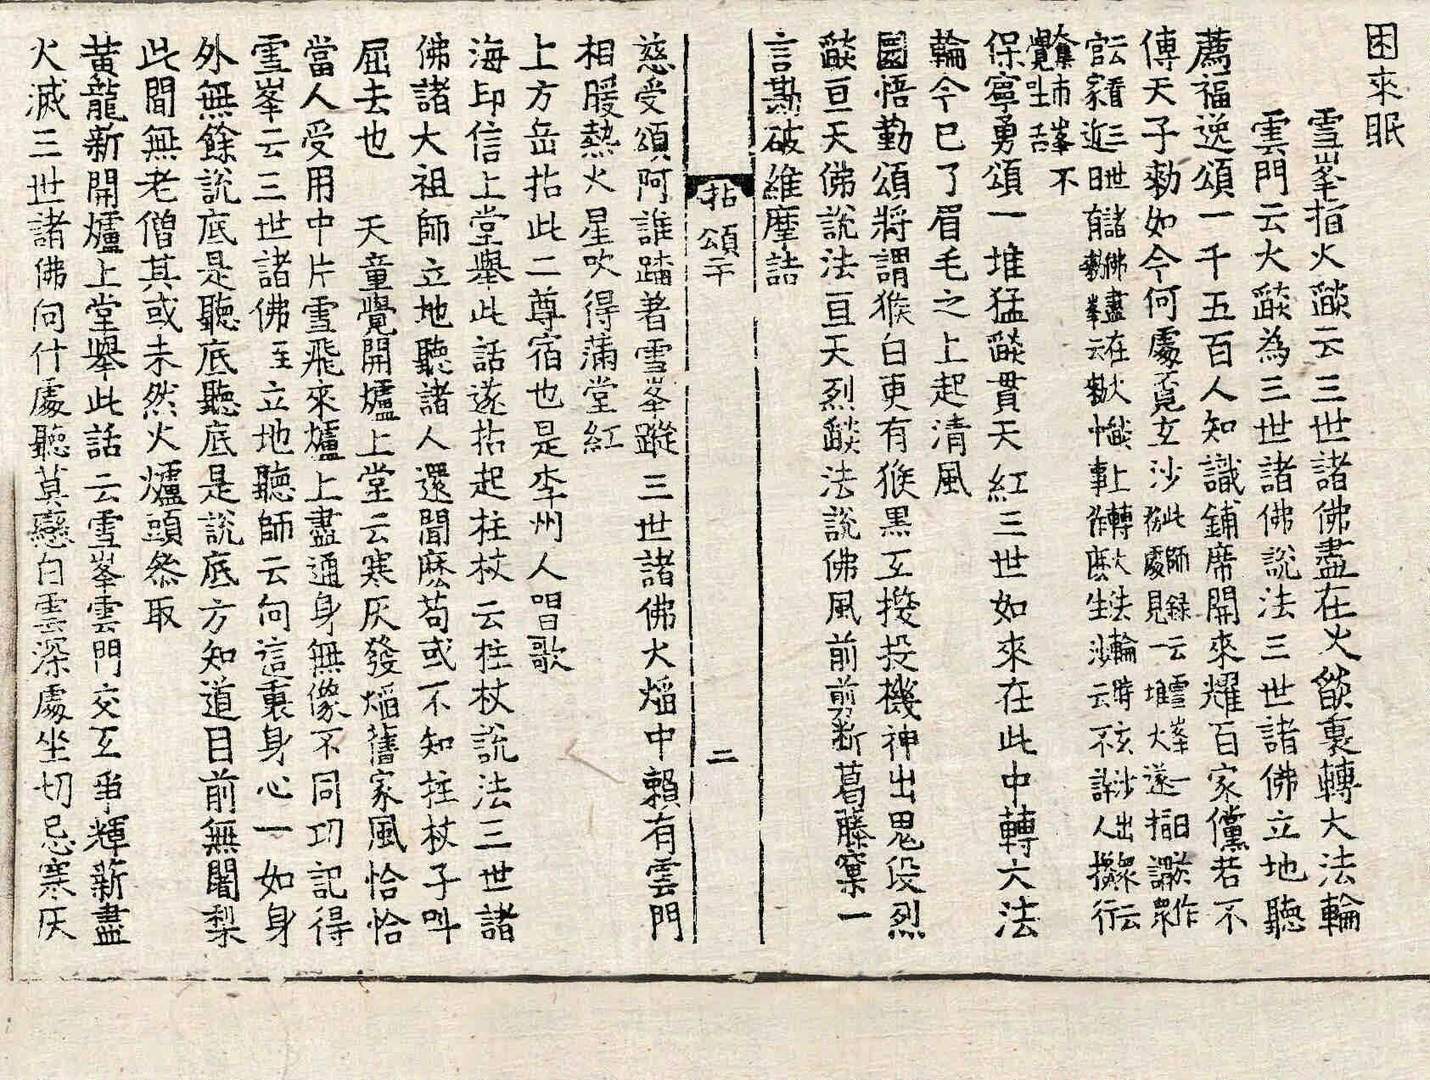 困來眠
雪峯指火𦦨云三世諸佛盡在火𦦨裏轉大法輪
雲門云火𦦨為三世諸佛說法三世諸佛立地聽
薦福逸頌一千五百人知識鋪席開來耀百家儻若不
傳天子勑如今何處覓玄沙此師錄云雪峯一日於作
務處見一堆火遂指謂衆
云看三世諸佛盡在火𦦨上轉大法輪時玄沙出衆云
官家近日有勑峯云勑什事作麽生沙云不許人攙行
奪市峯不
覺吐舌
保寧勇頌一堆猛𦦨貫天紅三世如來在此中轉大法
輪今已了眉毛之上起清風
圜悟勤頌將謂猴白更有猴黑互換投機神出鬼没烈
𦦨亘天佛說法亘天烈𦦨法說佛風前剪斷葛藤窠一
言勘破維摩詰
拈頌二十
二
慈受頌阿誰踏著雪峯蹤三世諸佛火熖中賴有雲門
相暖熱火星吹得蒲堂紅
上方岳拈此二尊宿也是李州人唱歌
海印信上堂舉此話遂拈起柱杖云柱杖說法三世諸
佛諸大祖師立地聽諸人還聞麽苟或不知拄杖子呌
屈去也　天童覺開爐上堂云寒灰發熖舊家風恰恰
當人受用中片雪飛來爐上盡通身無像不同功記得
雪峯云三世諸佛至立地聽師云向這裏身心一如身
外無餘說底是聽底聽底是說底方知道目前無闍梨
此間無老僧其或未然火爐頭叅取
黃龍新開爐上堂舉此話云雪峯雲門交互爭輝薪盡
火滅三世諸佛向什處聽莫戀白雲深處坐切忌寒灰